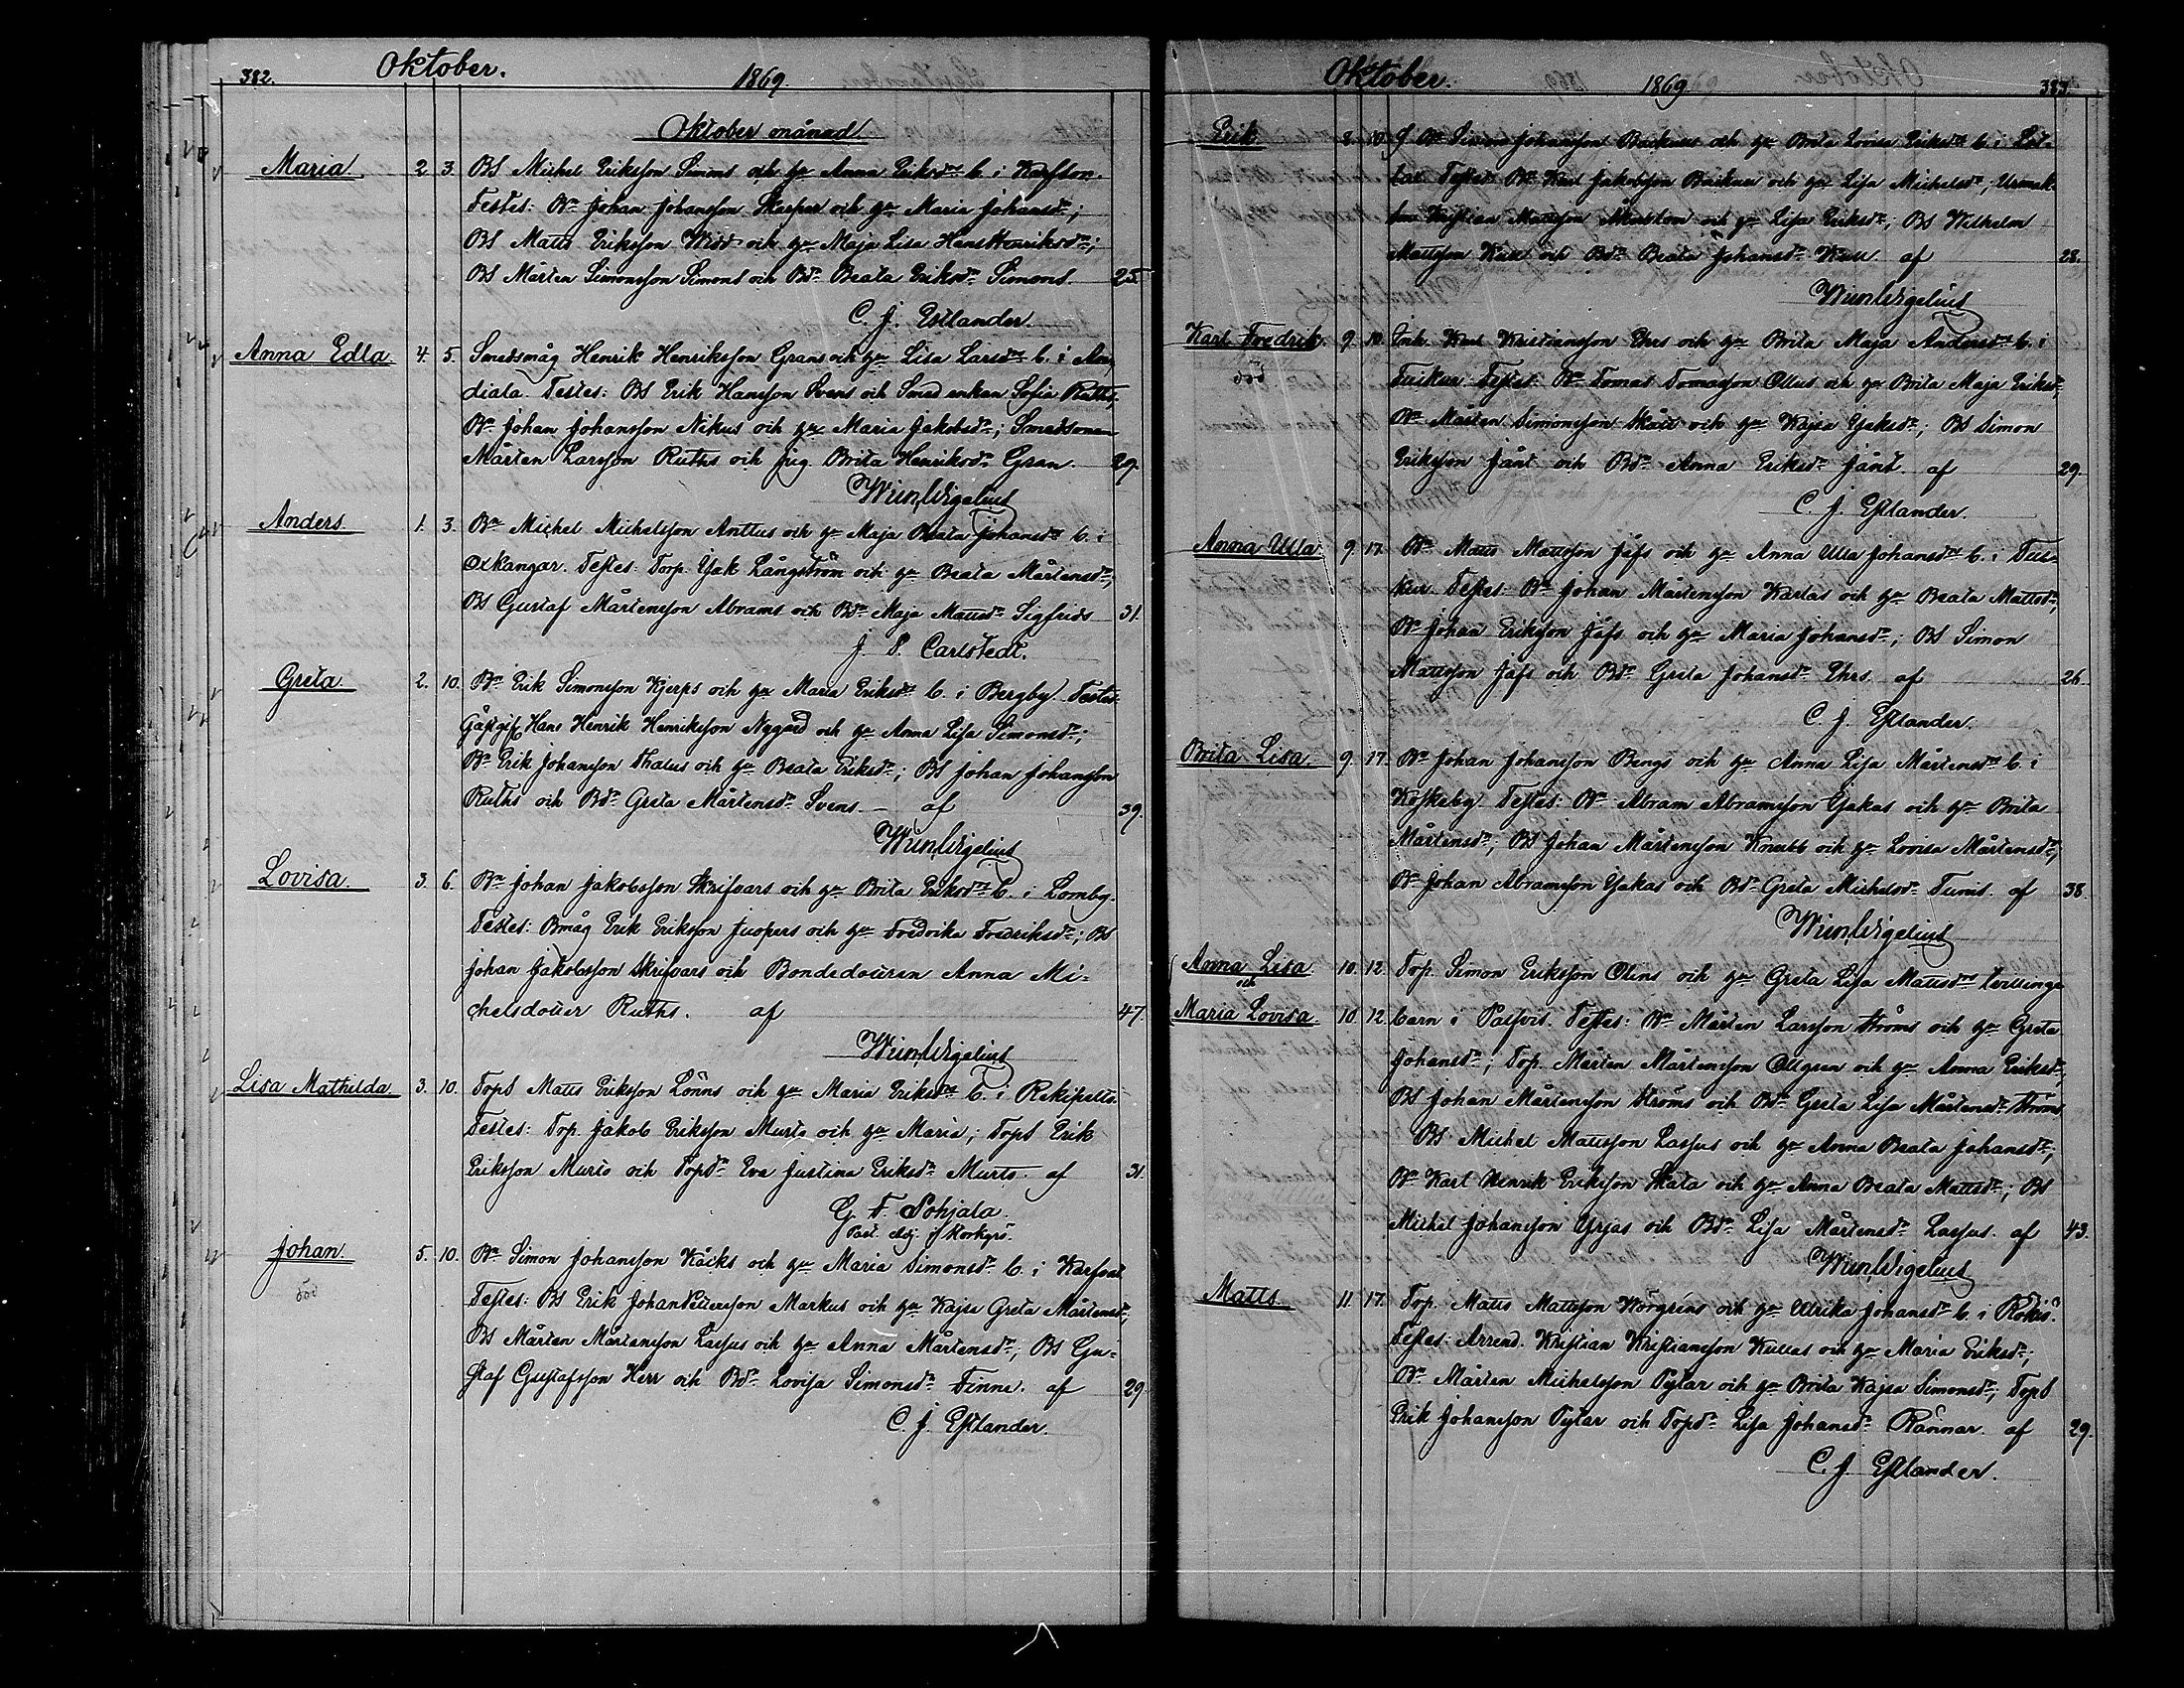 382. Oktober. 1869.
Oktober månad.
Maria 2. 3. BS Michel Eriksson Simons och hu Anna Eriksdrs b. i Karfsor.
Testes: Bn Johan Johansson Skarpar och hu Maria Johansdr;
BS Matts Eriksson Widd och hu Maja Lisa Hans Henriksdr;
BS Mårten Simonsson Simons och Bdr Beata Eriksdr Simons. 25
C. J. Estlander.
Anna Edla. 4. 5. Smedsmåg Henrik Henriksson Gran och hu Lisa Larsdrs b. i An-
diala. Testes: BS Erik Hansson Svens och Smed enkan Sofia Ruths,
Bn Johan Johansson Nikus och hu Maria Jakobsdr; Smedsonen
Mårten Larsson Ruths och pig. Brita Henriksdr Gran. 29.
Wigelius
Anders. 1. 3. Bn Michel Michelsson Anttus och hu Maja Beata Johansdrs b. i
Oxkangar. Testes: Torp. Isak Långström och hu Beata Mårtensdr;
BS Gustaf Mårtensson Abrams och Bdr Maja Mattsdr Sigfrids 31.
J. S. Carlstedt.
Greta 2. 10. Bn Erik Simonsson Kjerps och hu Maria Eriksdrs b. i Bergby. Testes
Gästgif. Hans Henrik Henriksson Nygård och hu Anna Lisa Simonsdr;
Bn Erik Johansson Thalus och hu Beata Eriksdr; BS Johan Johansson
Ruths och Bdr Greta Mårtensdr Svens. – af 39.
Wigelius
Lovisa. 3. 6. Bn Johan Jakobsson Skrifvars och hu Brita Eriksdrs b. i Lomby.
Testes: Bmåg Erik Eriksson Juopers och hu Fredrika Fredriksdr; BS
Johan Jakobsson Skrifvars och Bondedottren Anna Mi-
chelsdotter Ruths. af 47.
Wigelius
Lisa Mathilda. 3. 10. TopS Matts Eriksson Lönns och hu Maria Eriksdrs b. i Rekipelto.
Testes: Top. Jakob Eriksson Murto och hu Maria; TopS Erik
Eriksson Murto och Topdr Eva Justina Eriksdr Murto af 31.
G. F. Pohjala.
Past. Adj. i
Johan. 5. 10. Bn Simon Johansson Kåcks och hu Maria Simonsdr b. i Karfsor
död
Testes: BS Erik Johan Pettersson Markus och hu Kajsa Greta Mårtensdr;
BS Mårten Mårtensson Lassus och hu Anna Mårtensdr; BS Gu-
staf Gustafsson Herr och Bdr Lovisa Simonsdr Finne. af 29
C. J. Estlander.
Oktober. 1869 383.
Erik 8. 10. Bn Simon Johansson Backus och hu Brita Lovisa Eriksdrs b. i Lot-
lax. Testes: Bn Karl Jakobsson Backus och hu Lisa Michelsdr; Urmak.
Kristian Mattsson och hu Lisa Eriksdr; BS Wilhelm
Mattsson Kull och Bdr Beata Johansdr Kull af 28.
Wigelius
Karl Fredrik. 9. 10. Inh. Karl Kristiansson Ehrs och hu Brita Maja Andersdrs b. i
död
Tuskur. Testes: Bn Tomas Tomasson Ollus och hu Brita Maja Eriksdr,
Bn Mårten Simonsson Skått och hu Kajsa Isaksdr; BS Simon
Eriksson Jånt och Bdr Anna Eriksdr Jånt. af 29.
C. J. Estlander.
Anna Ulla 9. 17. Bn Matts Mattsson Jåfs och hu Anna Ulla Johansdrs b. i Tus-
kur. Testes: Bn Johan Mårtensson Karlas och hu Beata Mattsdr;
Bn Johan Eriksson Jåfs och hu Maria Johansdr; BS Simon
Mattsson Jåfs och Bdr Greta Johansdr Ehrs. af 26
C. J. Estlander.
Brita Lisa. 9. 17. Bn Johan Johansson Bengs och hu Anna Lisa Mårtensdrs b. i
Koskeby. Testes: Bn Abram Abramsson Isakas och hu Brita
Mårtensdr; BS Johan Mårtensson Knubb och hu Lovisa Mårtensdr;
Bn Johan Abramsson Isakas och Bdr Greta Michelsdr Tunis. af 38.
Wigelius
Anna Lisa 10. 12. Top. Simon Eriksson Olins och hu Greta Lisa Mattsdrs tvillinge
och
Maria Lovisa. 10. 12. barn i Palfvis. Testes: Bn Mårten Larsson Ströms och hu Greta
Johansdr; Top. Mårten Mårtensson Ollgren och hu Anna Eriksdr;
BS Johan Mårtensson Ströms och Bdr Greta Lisa Mårtensdr Ströms
BS Michel Mattsson Lassus och hu Anna Beata Johansdr;
Bn Karl Henrik Eriksson Skata och hu Anna Beata Mattsdr; BS
Michel Johansson Yrjas och Bdr Lisa Mårtensdr Lassus. af 43.
Wigelius
Matts 11. 17. Top. Matts Mattsson Norgrens och hu Ulrika Johansdr b. i Rökiö.
Testes: Arrend. Kristian Kristiansson Kullas och hu Maria Eriksdr;
Bn Mårten Michelsson Pylar och hu Brita Kajsa Simonsdr; TopS
Erik Johansson Pylar och Topdr Lisa Johansdr Rännar. af 29.
C. J. Estlander.